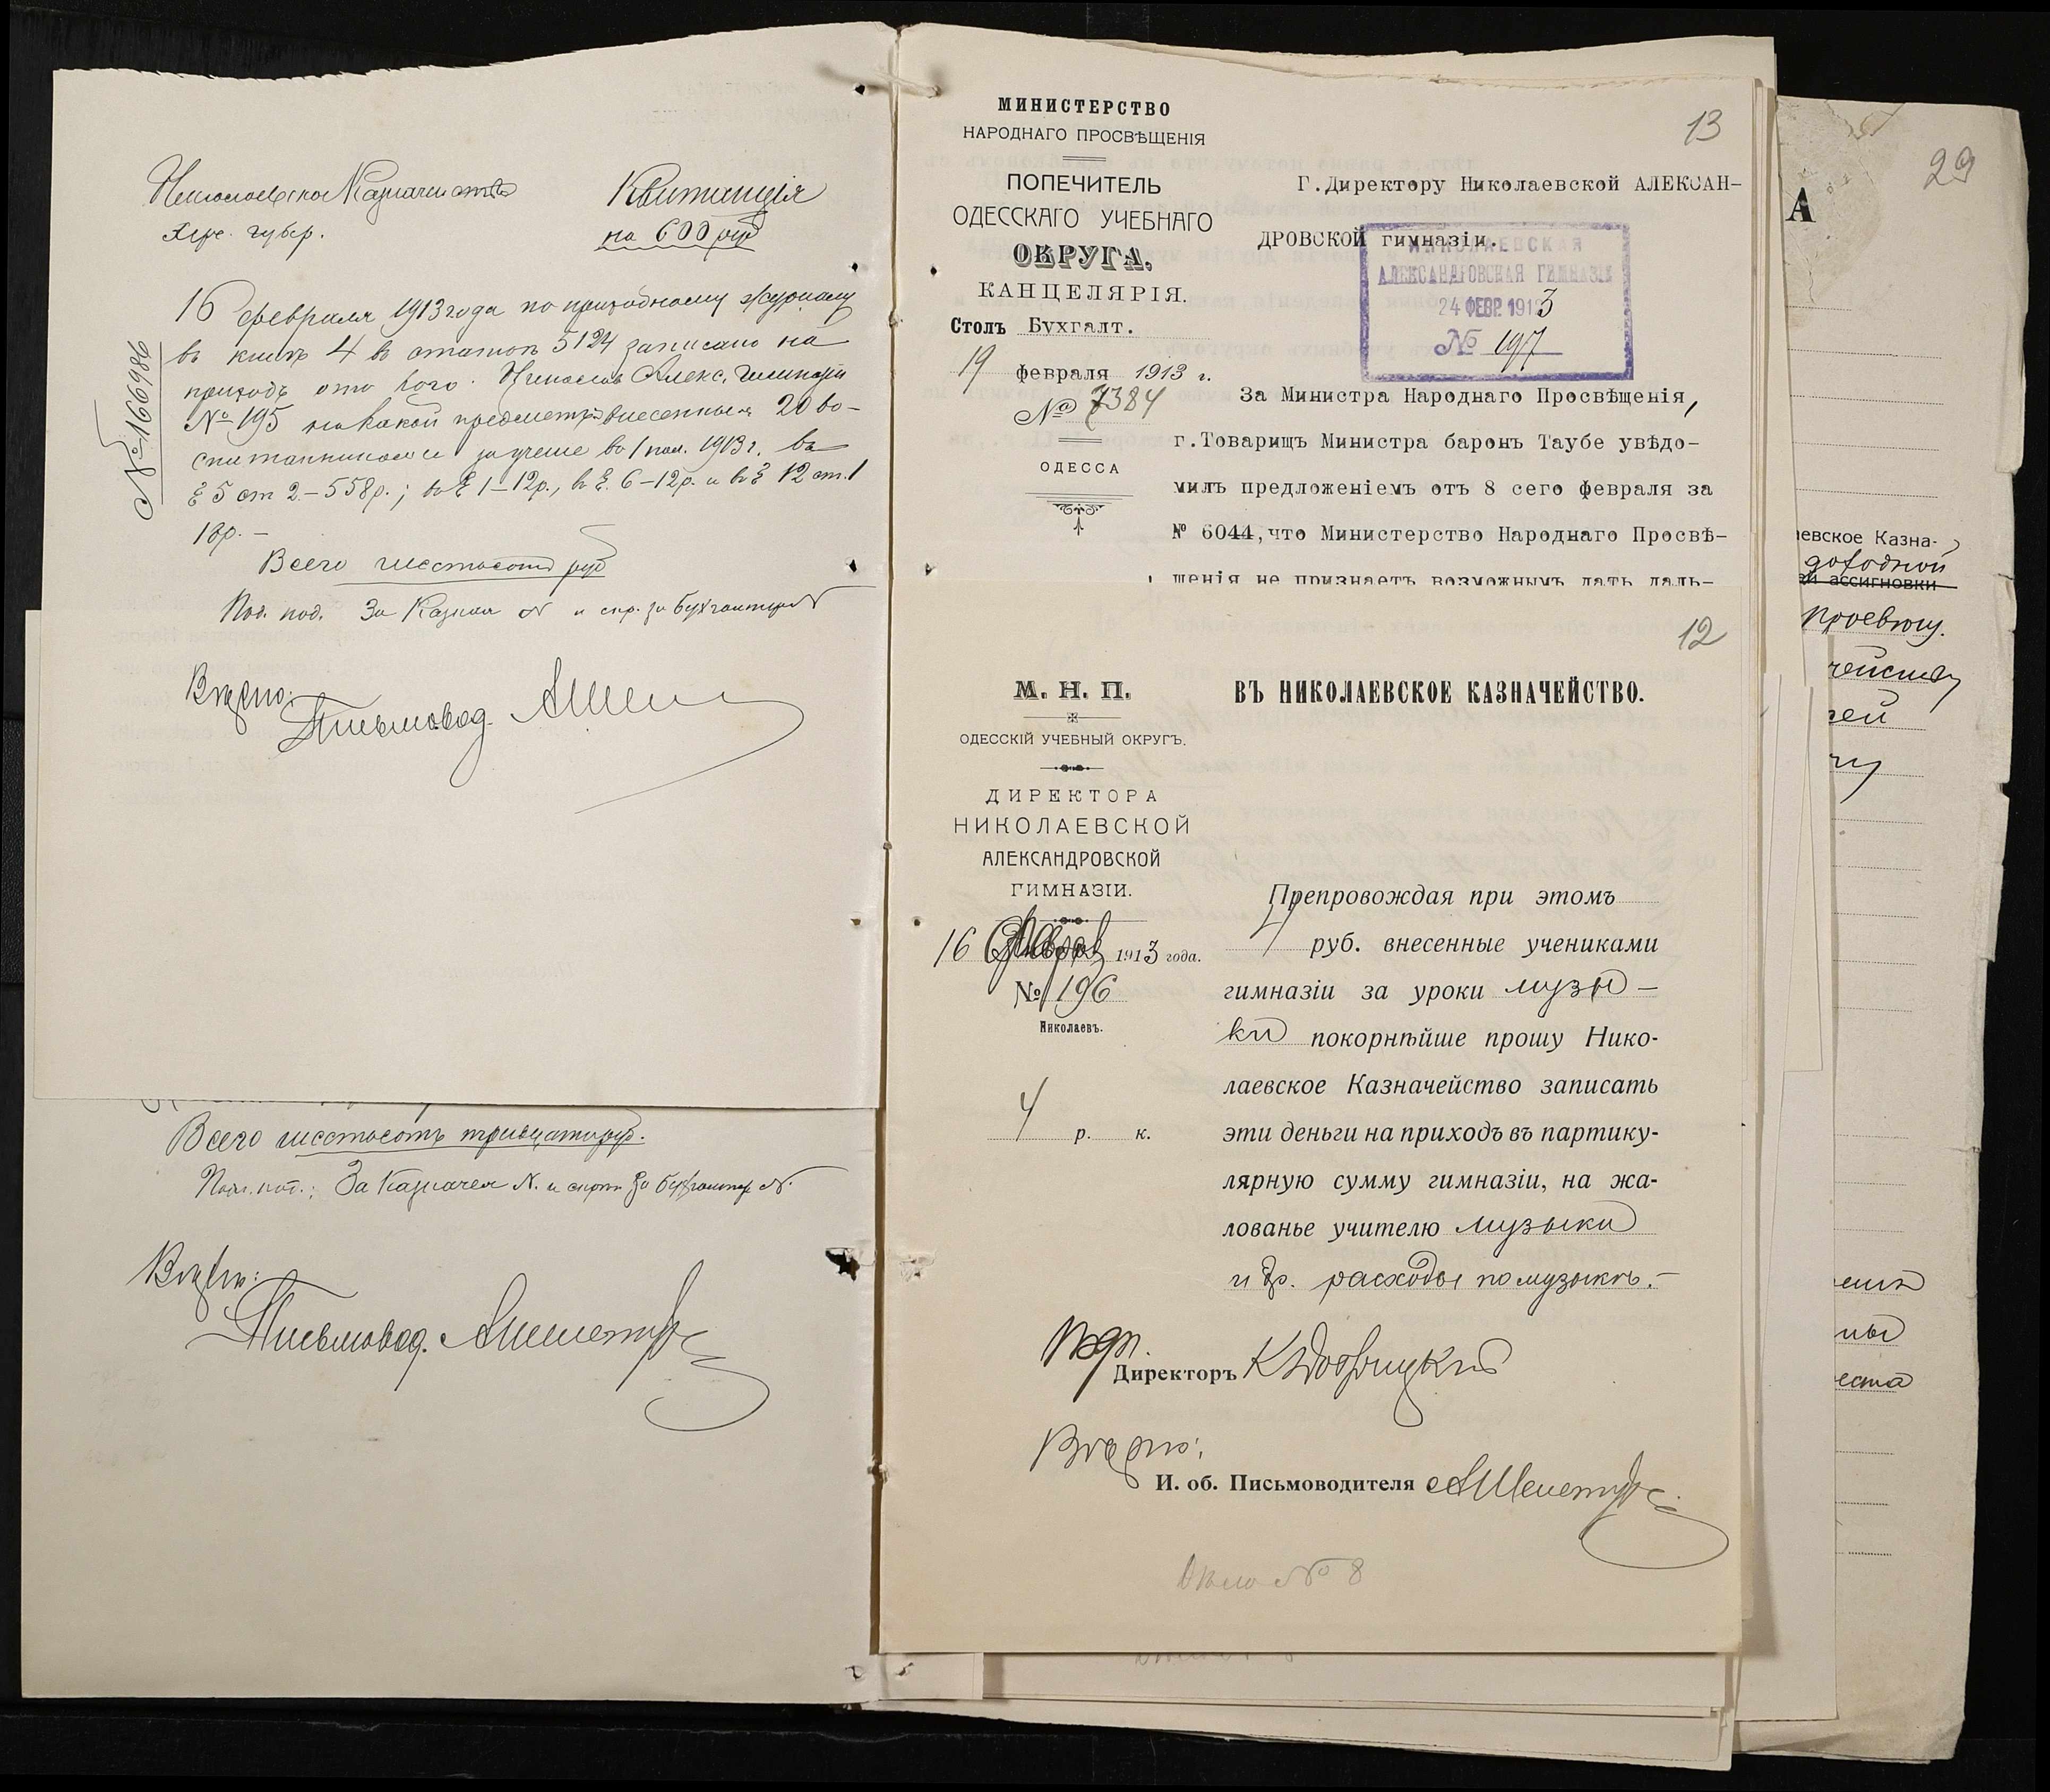 Николаевское Казначейство
Херс. губер.
Квитанція
на 600 руб
№ 166986
16 февраля 1913 года по приходному журналу
въ книгѣ 4 въ статьѣ 5124 записано на
приходъ отъ Николаев Алекс. Гимназіи
№ 195 на какой предметъ внесенныя 20 во-
спитанниками за ученіе въ 1 пол. 1913 г. въ
§ 5 ст 2 – 558 р.; въ § 1 – 12 р., въ §. 6 – 12 р. и въ § 12 ст. 1
18 р. –
Всего шестьсотъ руб
Под. под. За Казнач N и скр. за бухгалтера N
Вѣрно:
Письмовод.
Всего шестьсотъ тридцать руб.
Подл. под.: За Казначея N. и скрѣп за бухгалтер N.
Вѣрно:
Письмовод.
МИНИСТЕРСТВО
НАРОДНАГО ПРОСВѢЩЕНІЯ
ПОПЕЧИТЕЛЬ
ОДЕССКАГО УЧЕБНАГО
ОКРУГА.
КАНЦЕЛЯРІЯ.
Столъ Бухгалт.
19 февраля 1913 г.
№ 7384
ОДЕССА
13
Г.Директору Николаевской АЛЕКСАН-
ДРОВСКОЙ гимназіи.
НИКОЛАЕВСКАЯ
АЛЕКСАНДРОВСКАЯ ГИМНАЗІЯ
24 ФЕВР 1913
№ 197
За Министра Народнаго Просвѣщенія,
г.Товарищъ Министра баронъ Таубе увѣдо-
милъ предложеніемъ отъ 8 сего февраля за
№ 6044,что Министерство Народнаго Просвѣ-
щенія не признаетъ возможнымъ дать даль-
12
М. Н. П.
ОДЕССКІЙ УЧЕБНЫЙ ОКРУГЪ.
ДИРЕКТОРА
НИКОЛАЕВСКОЙ
АЛЕКСАНДРОВСКОЙ
ГИМНАЗІИ.
16 Феврал 1913 года.
№ 196
Николаевъ.
4 р. к.
ВЪ НИКОЛАЕВСКОЕ КАЗНАЧЕЙСТВО.
Препровождая при этомъ
4 руб. внесенные учениками
гимназіи за уроки музы-
ки покорнѣйше прошу Нико-
лаевское Казначейство записать
эти деньги на приходъ въ партику-
лярную сумму гимназіи, на жа-
лованье учителю музыки
и др. расходы по музыкѣ. –
Директоръ
Вѣрно:
И. об. Письмоводителя
Дѣло № 8
29
А
аевское Казна-
доходной
ей ассигновки